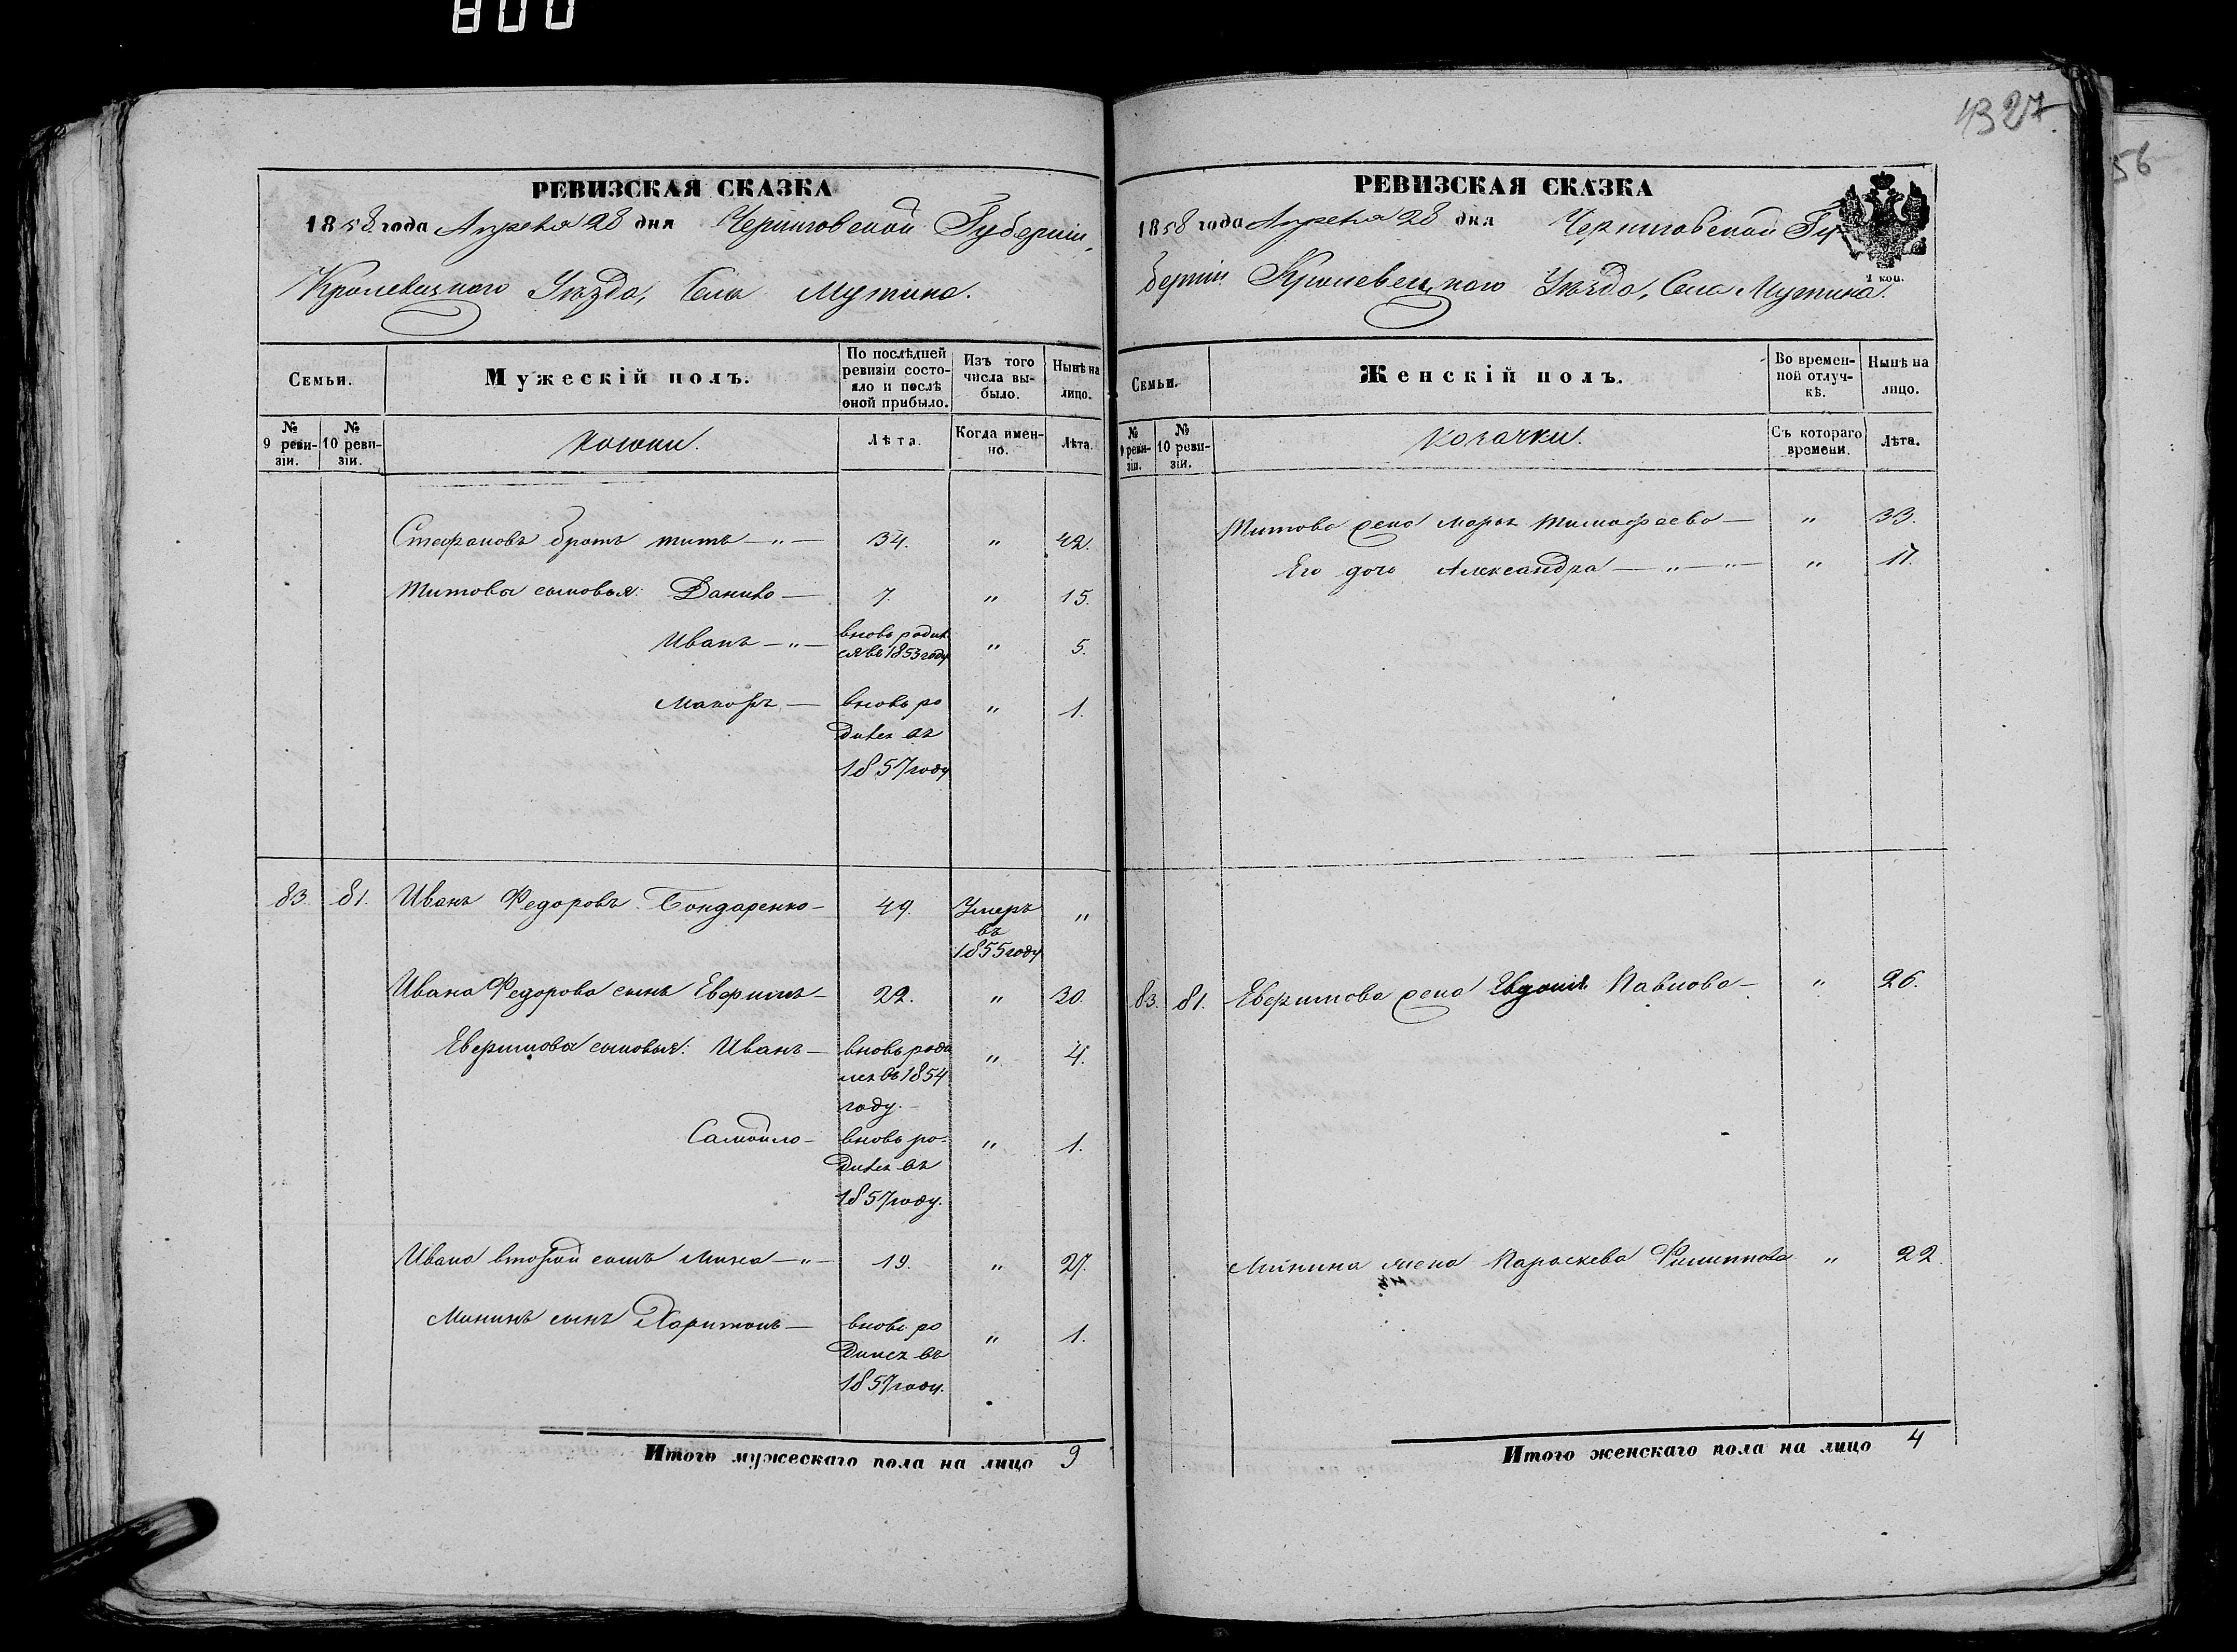 800
4327
56
РЕВИЗСКАЯ СКАЗКА
1858 года Апреля 28 дня Черниговской Губерніи,
Кролевецкаго Уѣзда, Села Мутина.
Семьи.
Мужескій полъ.
По послѣдней ревизіи состояло и послѣ оной прибыло.
Изъ того числа выбыло.
Нынѣ на лицо.
№ 9 ревизіи.
№ 10 ревизіи.
Лѣта.
Когда именно.
Лѣта.
Стефановъ братъ Титъ — „ — 34. „ 42.
Титовы сыновья: Данило — 7. „ 15.
Иванъ — „ — вновь родил
ся въ 1853 году „ 5.
Макаръ — вновь ро „ 1.
дился въ
1857 году
83. 81. Иванъ Федоровъ Бондаренко — 49. Умеръ „
въ
1855 году
Ивана Федорова сынъ Евфимъ — 22. „ 30.
Евфимовы сыновья: Иванъ — вновь роди „ 4.
лся въ 1854
году. —
Самойло — вновь ро- „ 1.
дился въ
1857 году.
Ивана второй сынъ Мина — „ — 19. „ 27.
Мининъ сынъ Харитонъ — вновь ро „ 1.
дился въ
1857 году.
Итого мужескаго пола на лицо 9
РЕВИЗСКАЯ СКАЗКА
1858 года Апреля 28 дня Черниговской Гу
берніи Кролевецкаго Уѣзда, Села Мутина.
2 коп.
Семьи.
Женскій полъ.
Во временной отлучкѣ.
Нынѣ на лицо.
№ 9 ревизіи.
№ 10 ревизіи.
Козачки.
Съ котораго времени.
Лѣта.
Титова жена Марья Тимофеева — „ 33.
Его дочь Александра — „ — „ — „ 17.
83. 81. Евфимова жена Евдокія Павлова — „ 26.
Минина жена Параскева Филиппова „ 22.
Итого женскаго пола на лицо 4